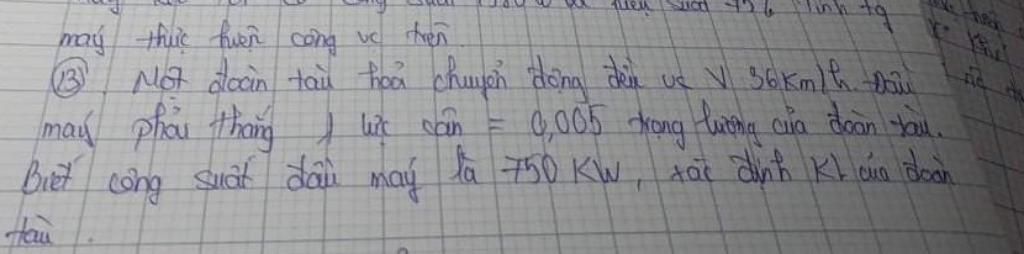 suất
máy thực hiện công việc trên.
⑬. Một đoàn tàu hoả chuyển động đều vs V 36Km/h. Đầu
máy phải thắng 1 lực cản = 0,005 trọng lượng của đoàn tàu.
Biết công suất đầu máy là 750 KW, xác định KL của đoàn
tàu.